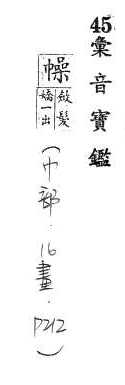 45彙音寶鑑
幧
斂髮
嬌一出
(巾部.16畫.P212)